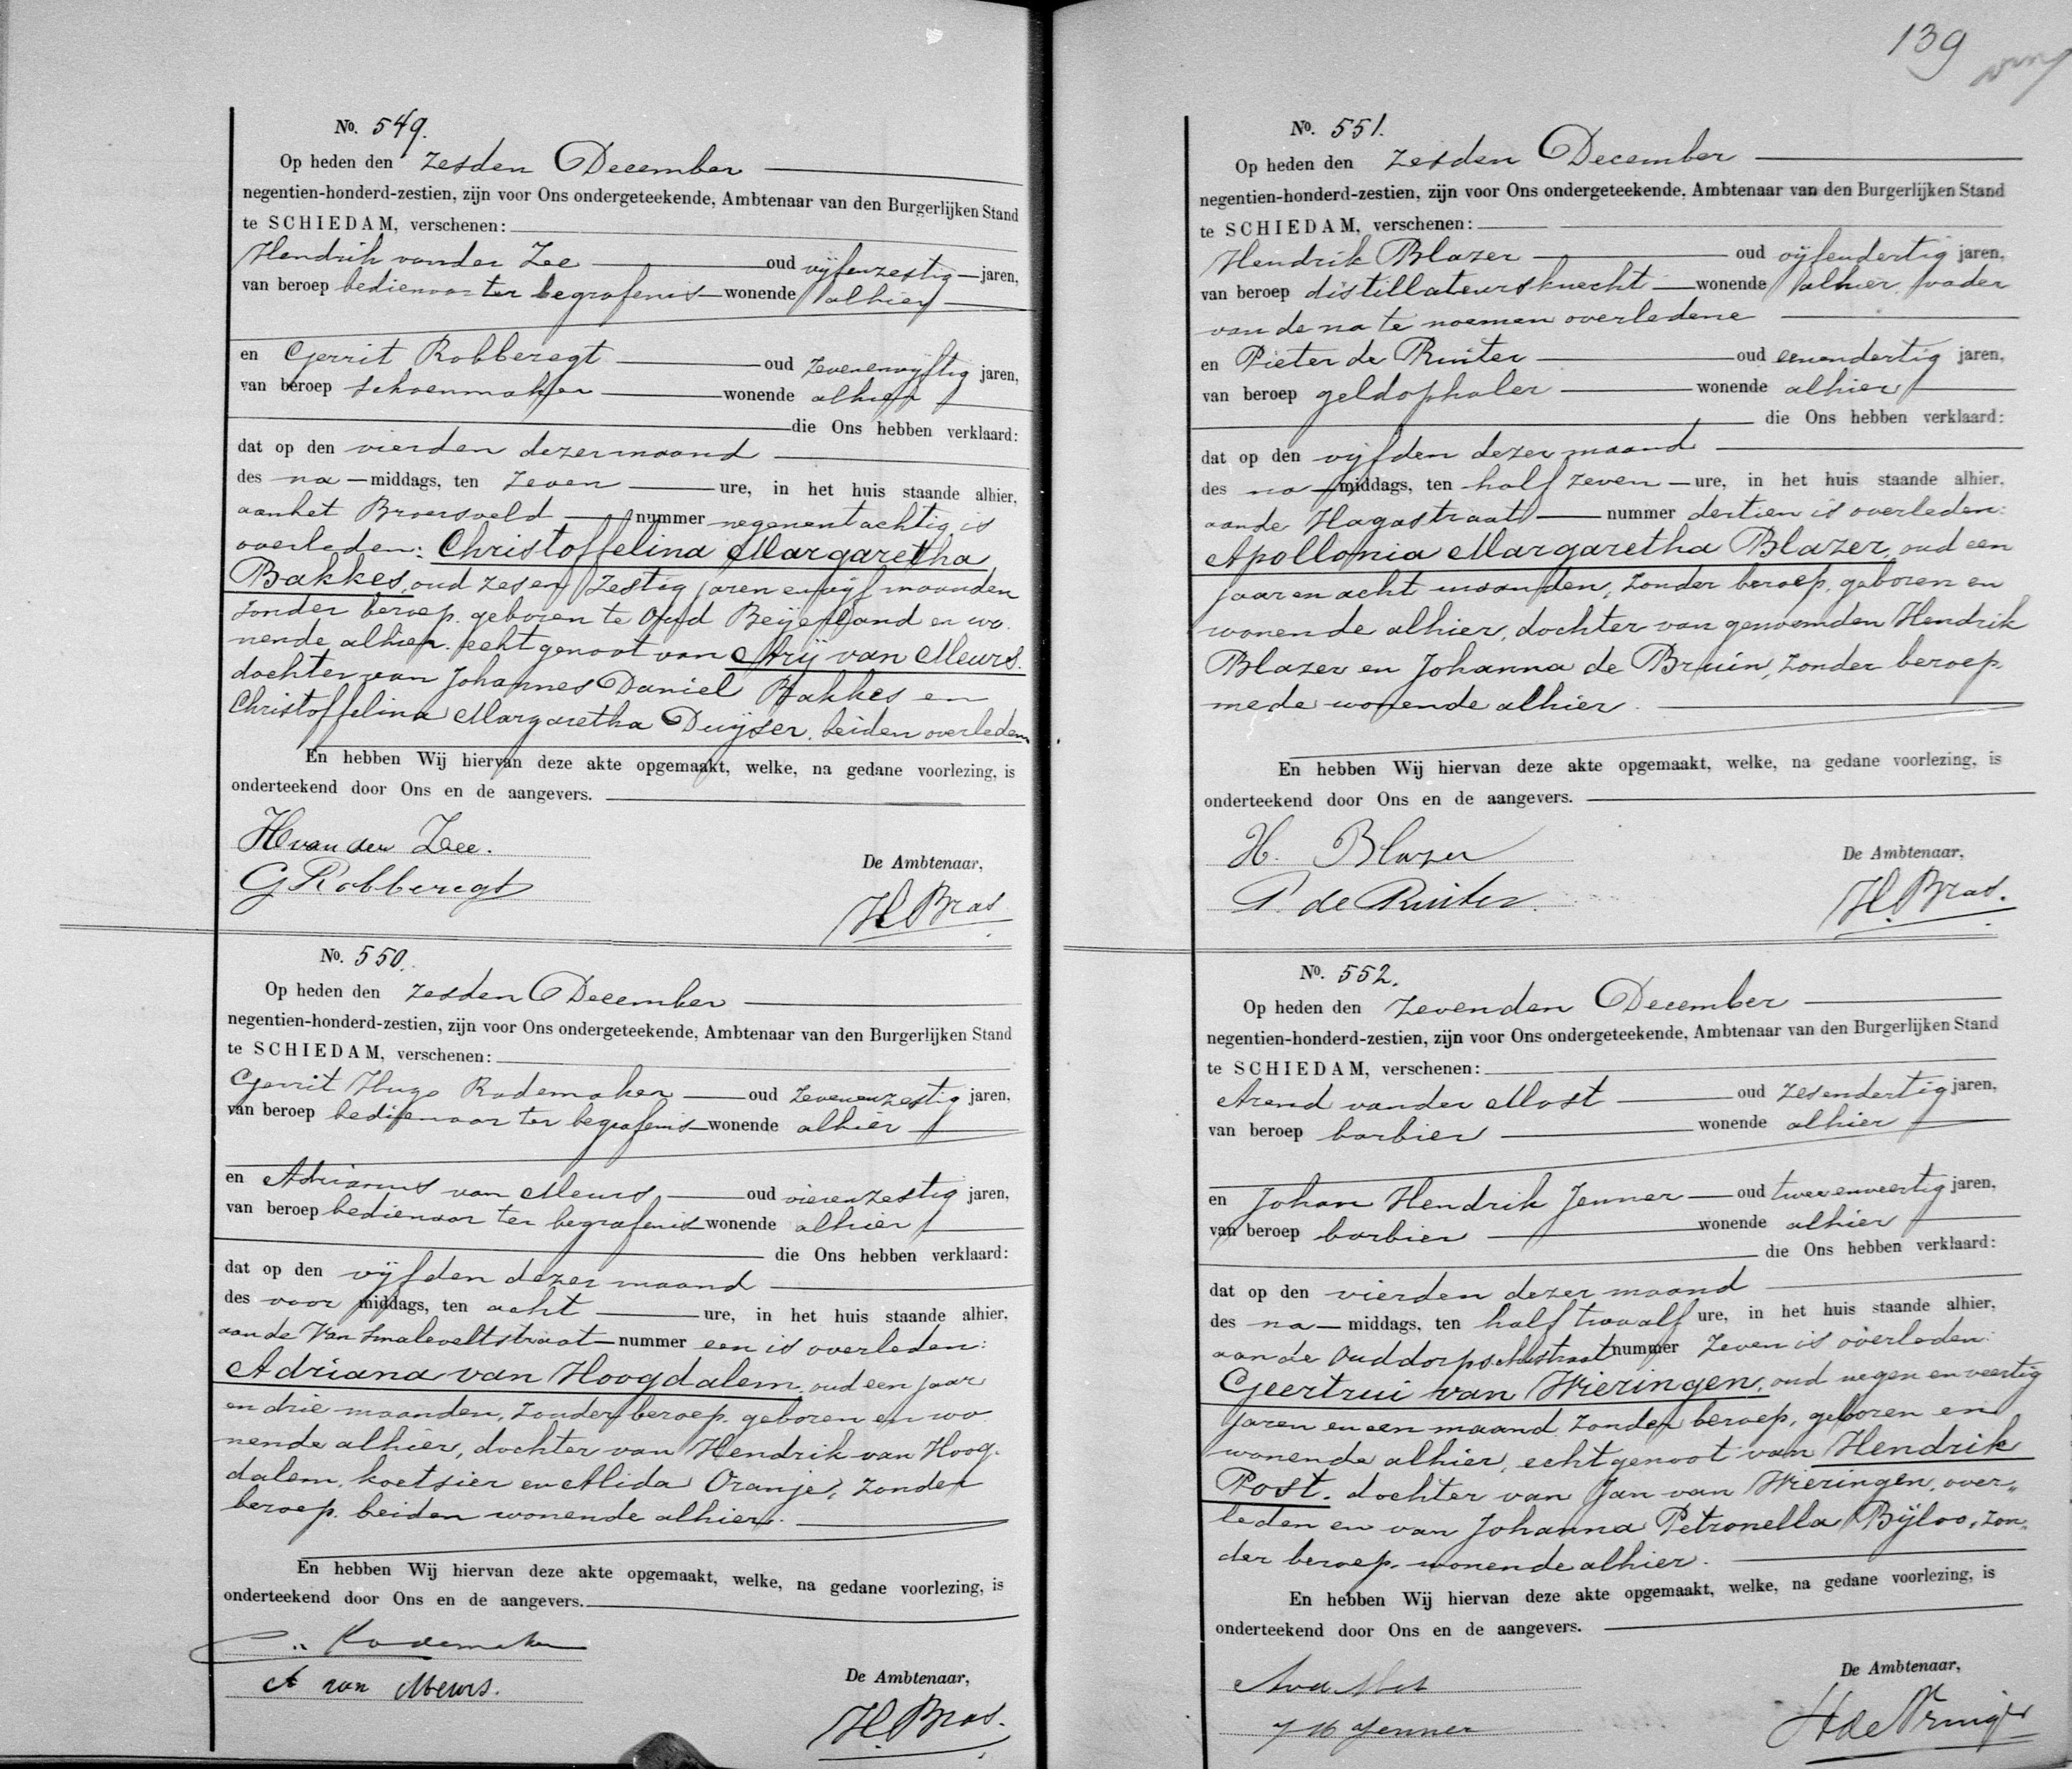 No. 549.
Op heden den zesden December
negentien-honderd-zestien, zijn voor Ons ondergeteekende, Ambtenaar van den Burgerlijken Stand
te SCHIEDAM, verschenen:
Hendrik van der Zee oud vijfenzestig jaren,
van beroep bedienaar ter begrafenis wonende alhier
en Gerrit Robberegt oud zevenenvijftig jaren,
van beroep schoenmaker wonende alhier
die Ons hebben verklaard:
dat op den vierden dezer maand
des na-middags, ten zeven ure, in het huis staande alhier,
aan het Broersveld nummer negenentachtig is
overleden: Christoffelina Margaretha
Bakkes, oud zes en zestig jaren en vijf maanden
zonder beroep, geboren te Oud Beijerland en wo
nende alhier, echtgenoot van Arij van Meurs.
dochter van Johannes Daniel Bakkes en
Christoffelina Margaretha Duijser, beiden overleden
En hebben Wij hiervan deze akte opgemaakt, welke, na gedane voorlezing, is
onderteekend door Ons en de aangevers.
H van der Zee.
De Ambtenaar,
G Robberegt
H. Bras.
No. 550.
Op heden den zesden December
negentien-honderd-zestien, zijn voor Ons ondergeteekende, Ambtenaar van den Burgerlijken Stand
te SCHIEDAM, verschenen:
Gerrit Hugo Rademaker oud zevenenzestig jaren,
van beroep bedienaar ter begrafenis wonende alhier
en Adrianus van Meurs oud vierenzestig jaren,
van beroep bedienaar ter begrafenis wonende alhier
die Ons hebben verklaard:
dat op den vijfden dezer maand
des voor middags, ten acht ure, in het huis staande alhier,
aan de Van Smaleveltstraat nummer een is overleden:
Adriana van Hoogdalem, oud een jaar
en drie maanden, zonder beroep, geboren en wo
nende alhier, dochter van Hendrik van Hoog-
dalem, koetsier en Alida Oranje, zonder
beroep, beiden wonende alhier.
En hebben Wij hiervan deze akte opgemaakt, welke, na gedane voorlezing, is
onderteekend door Ons en de aangevers.
Rademaker
De Ambtenaar,
A van Meurs.
H. Bras.
139
No. 551.
Op heden den zesden December
negentien-honderd-zestien, zijn voor Ons ondergeteekende, Ambtenaar van den Burgerlijken Stand
te SCHIEDAM, verschenen:
Hendrik Blazer oud vijfendertig jaren,
van beroep distillateursknecht wonende alhier, vader
van de na te noemen overledene
en Pieter de Ruiter oud eenendertig jaren,
van beroep geldophaler wonende alhier
die Ons hebben verklaard:
dat op den vijfden dezer maand
des na middags, ten half zeven ure, in het huis staande alhier,
aan de Hagastraat nummer dertien is overleden:
Apollonia Margaretha Blazer, oud een
jaar en acht maanden, zonder beroep, geboren en
wonende alhier, dochter van genoemden Hendrik
Blazer en Johanna de Bruin, zonder beroep
mede wonende alhier.
En hebben Wij hiervan deze akte opgemaakt, welke, na gedane voorlezing, is
onderteekend door Ons en de aangevers.
H. Blazer
De Ambtenaar,
P. de Ruiter.
H. Bras.
No. 552.
Op heden den zevenden December
negentien-honderd-zestien, zijn voor Ons ondergeteekende, Ambtenaar van den Burgerlijken Stand
te SCHIEDAM, verschenen:
Arend van der Most oud zesendertig jaren,
van beroep barbier wonende alhier
en Johan Hendrik Jenner oud tweeenveertig jaren,
van beroep barbier wonende alhier
die Ons hebben verklaard:
dat op den vierden dezer maand
des na-middags, ten half twaalf ure, in het huis staande alhier,
aan de Ouddorpschestraat nummer zeven is overleden:
Geertrui van Wieringen, oud negen en veertig
jaren en een maand, zonder beroep, geboren en
wonende alhier, echtgenoot van Hendrik
Post, dochter van Jan van Wieringen, over„
leden en van Johanna Petronella Bijloo, zon„
der beroep, wonende alhier.
En hebben Wij hiervan deze akte opgemaakt, welke, na gedane voorlezing, is
onderteekend door Ons en de aangevers.
De Ambtenaar,
J H Jenner